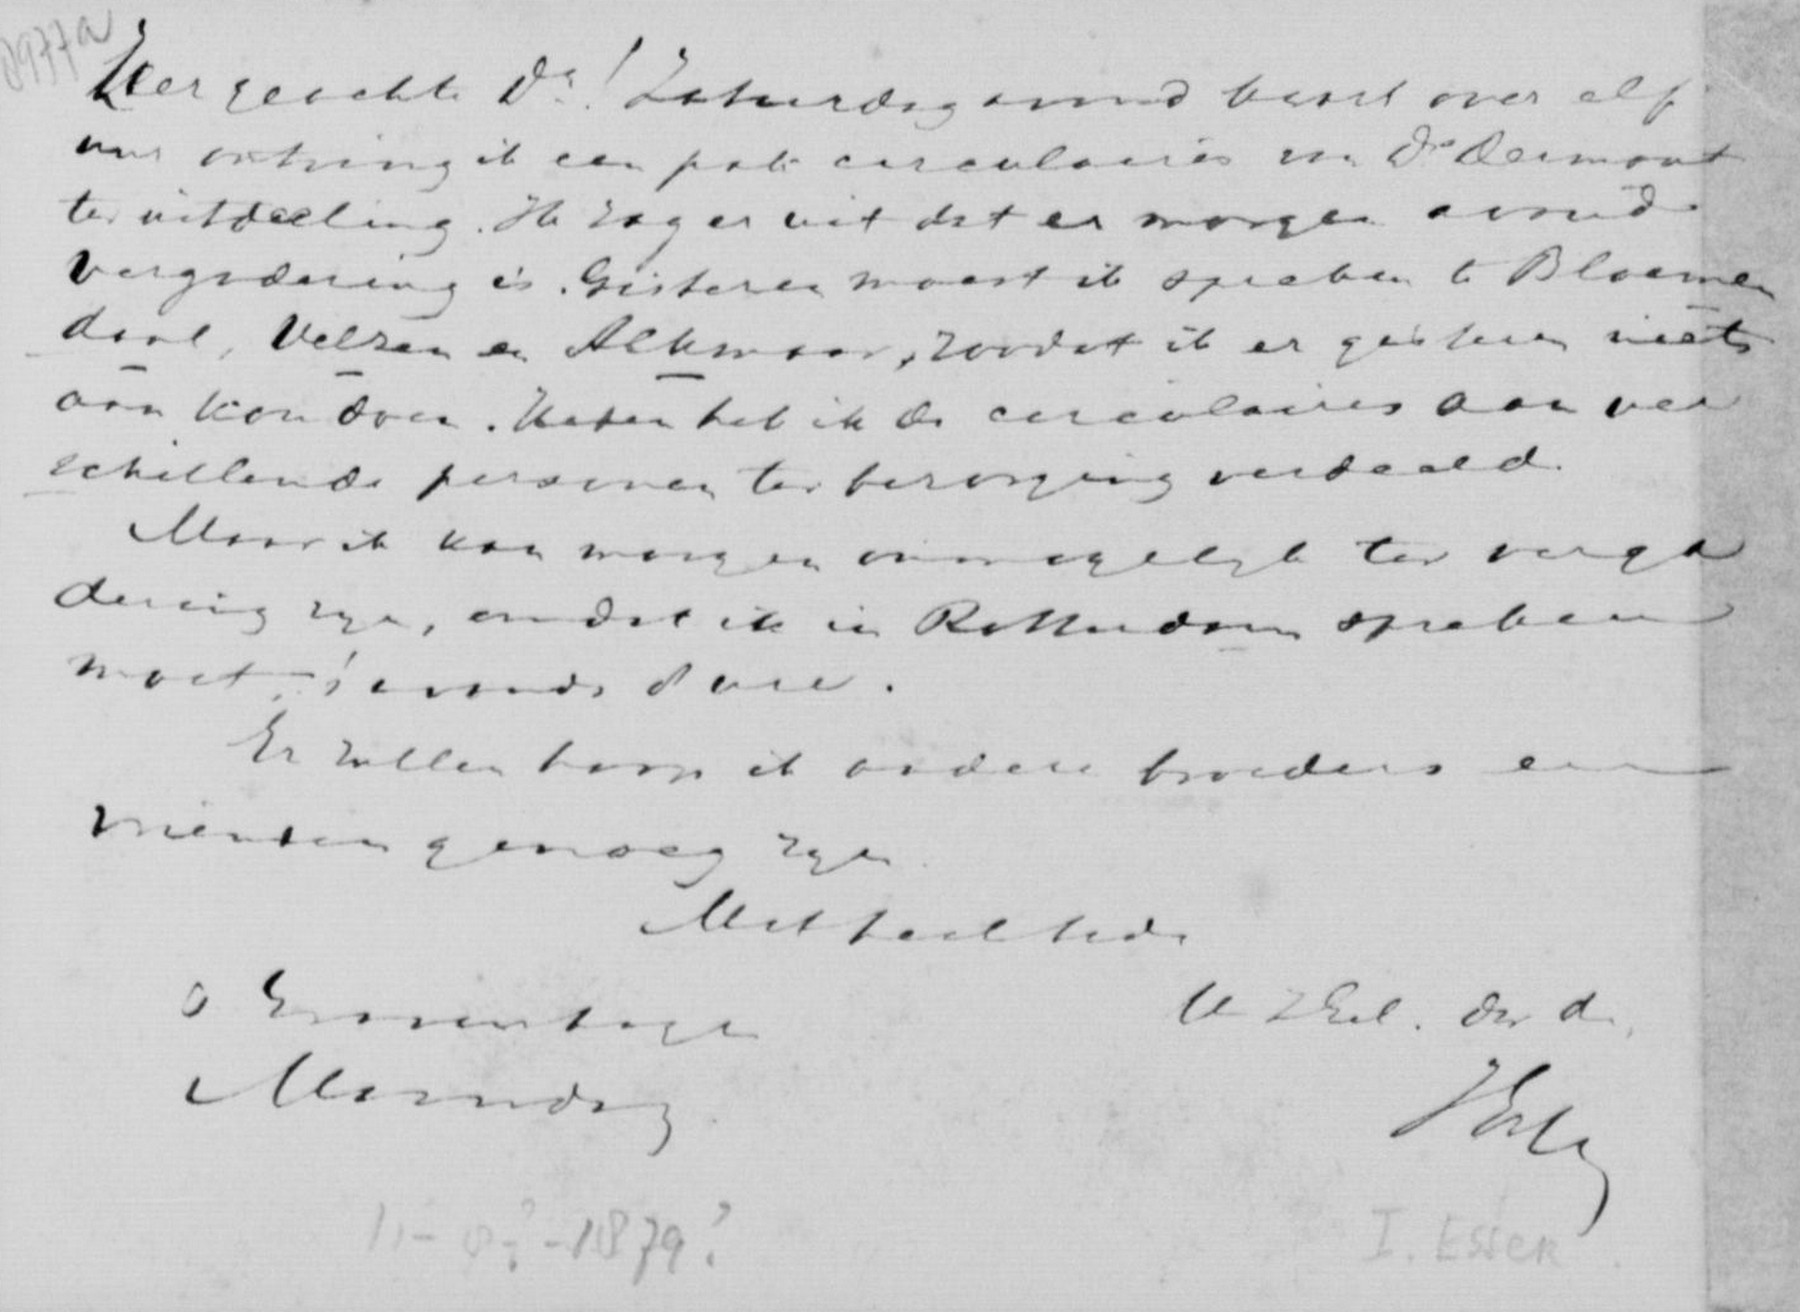 8977a
Zeer geachte Ds! Zaturdag avond kwart over elf
uur ontving ik een pak circulaires van Ds Dermout
ter uitdeeling. Ik zag er uit dat er morgen avond
vergadering is. Gisteren moest ik spreken te Bloemen
daal, Velzen en Alkmaar, zoodat ik er gisteren niets
aan kon doen. Heden heb ik de circulaires aan ver
schillende personen ter bezorging verdeeld.
Maar ik kan morgen onmogelijk ter verga
dering zijn, omdat ik in Rotterdam spreken
moet, 's avonds
Er zullen hoop ik andere broeders en
vrienden genoeg zijn
Met
's Gravenhage
U d.
Maandag
IEsser
11-8?-1879?
I. Esser